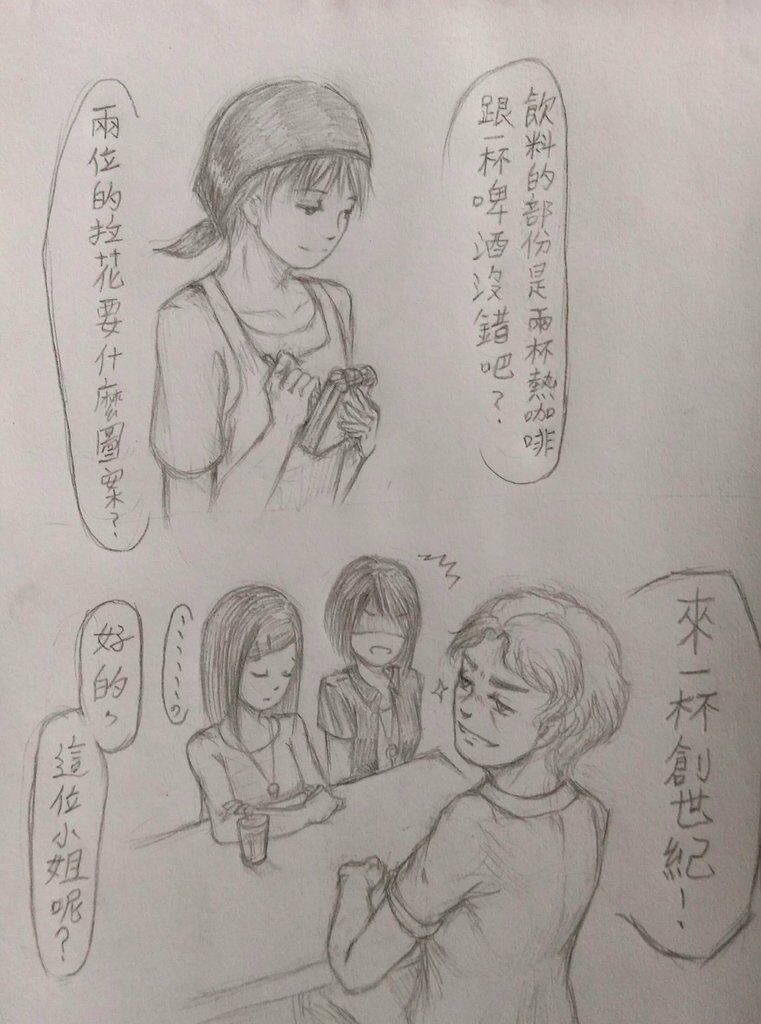 飲料的部份是兩杯熱咖啡
跟一杯啤酒沒錯吧？
兩位的拉花要什麼圖案？
來一杯創世紀！
……。
好的，
這位小姐呢？